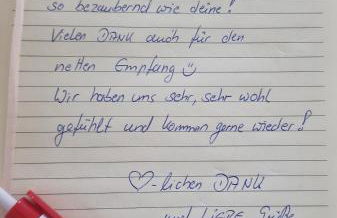 so bezaubernd wie deine!
Vielen DANK auch für den
netten Empfang ☺
Wir haben uns sehr, sehr wohl
gefühlt und kommen gerne wieder!
♡-lichen DANK
und LIEBE Grüße